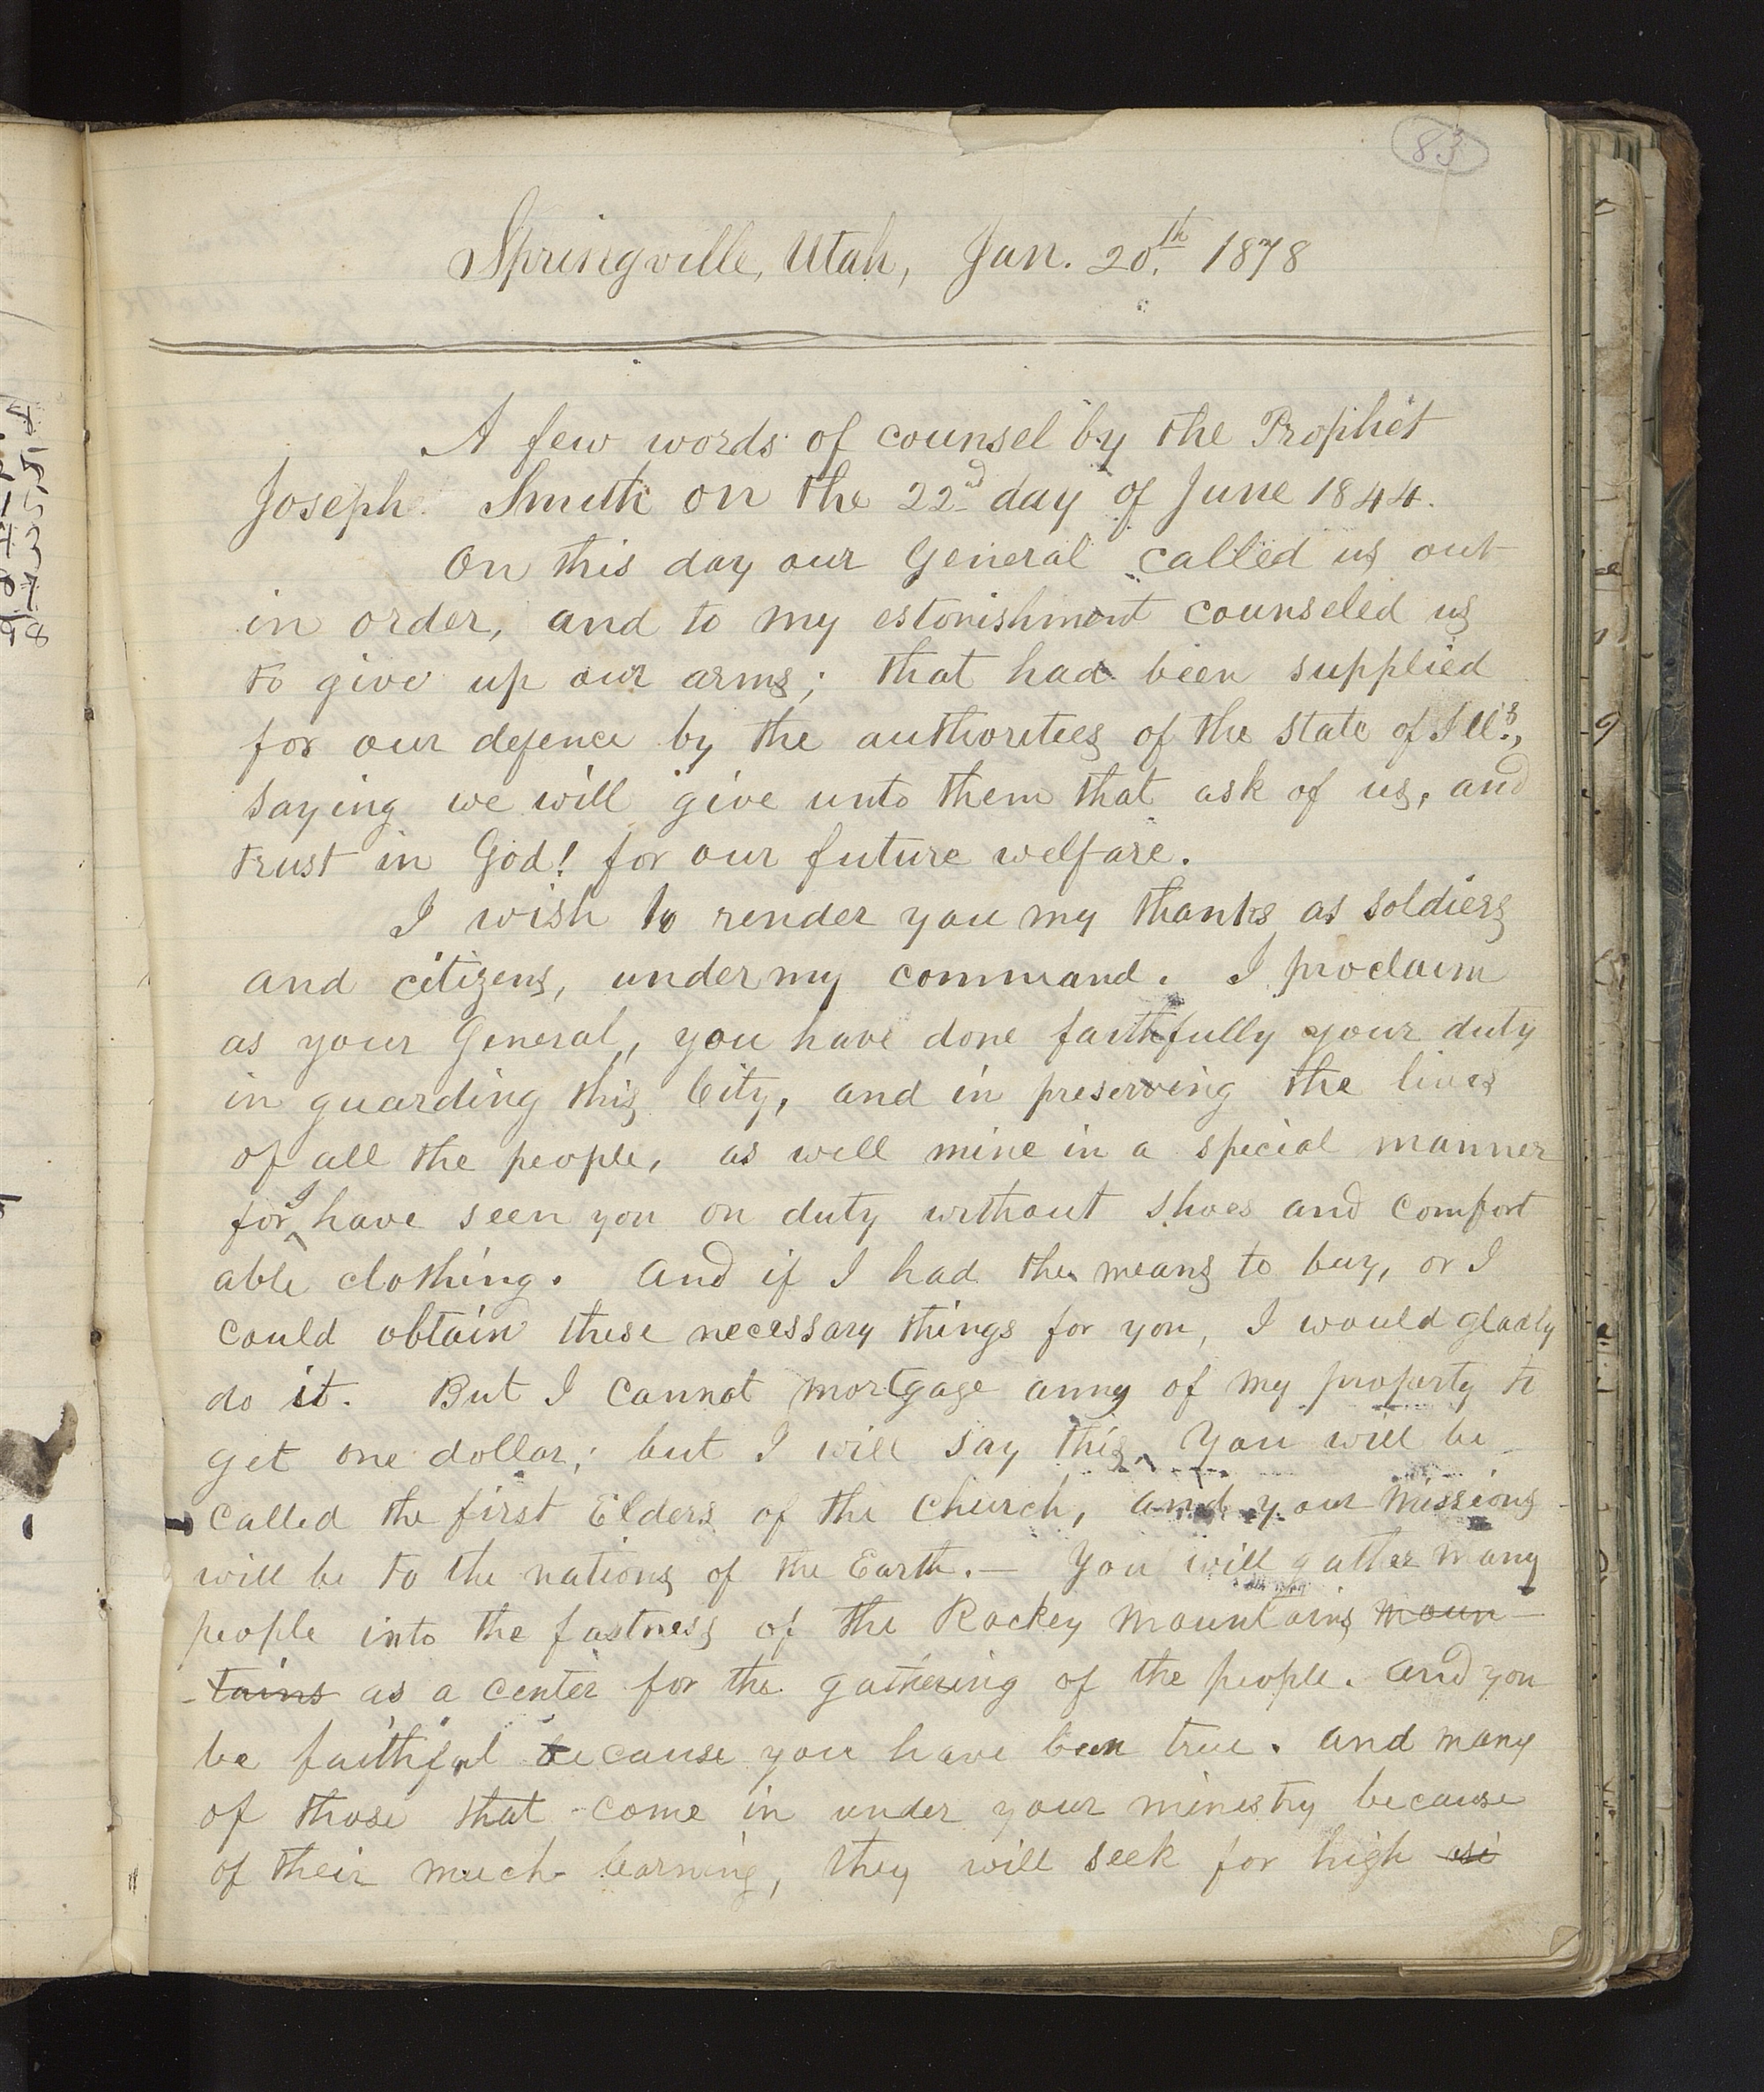 83
Springville, Utah, Jan. 20.th 1878
A few words of counsel by the Prophet
Joseph Smith on the 22d day of June 1844.
On this day our General called us out
in order, and to my estonishment counseled us
to give up our arms; that had been supplied
for our defence by the authoritees of the state of Ill's.,
saying we will give unto them that ask of us, and
trust in God! for our future welfare.
I wish to render you my thanks as soldiers
and citizens, under my command. I proclaim
as your General, you have done faithfully your duty
in guarding this City, and in preserving the lives
of all the people, as well mine in a special manner
for I have seen you on duty without shoes and comfort
able clothing. And if I had the means to buy, or I
could obtain these necessary things for you, I would gladly
do it. But I cannot mortgage anny of my property to
get one dollar; but I will say this, You will be
called the first Elders of the Church, and your missions
will be to the nations of the Earth. — You will gather many
people into the fastness of the Rockey Mountains moun-
-tains as a center for the gathering of the people. And you
be faithful because you have been true. And many
of those that come in under your minestry because
of their much learning, they will seek for high